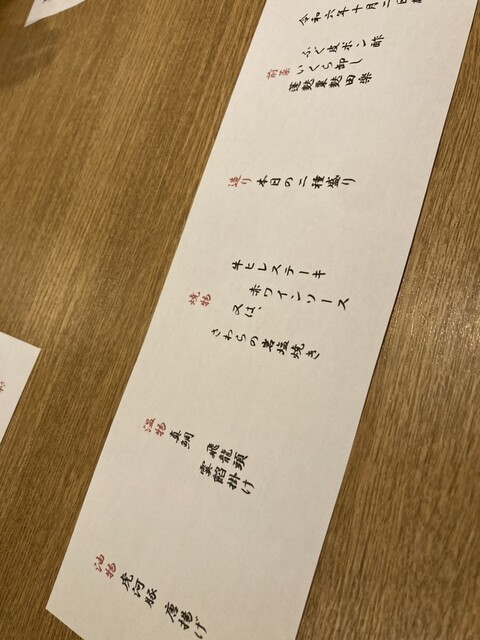 令和六年十月二日
前菜
ふぐ皮ポン酢
いくら卸し
蓬麩粟麩田楽
造り
本日の二種盛り
焼物
牛ヒレステーキ
赤ワインソース
又は、
さわらの岩塩焼き
温物
真鯛 飛龍頭
霙餡掛け
油物
虎河豚 唐揚げ